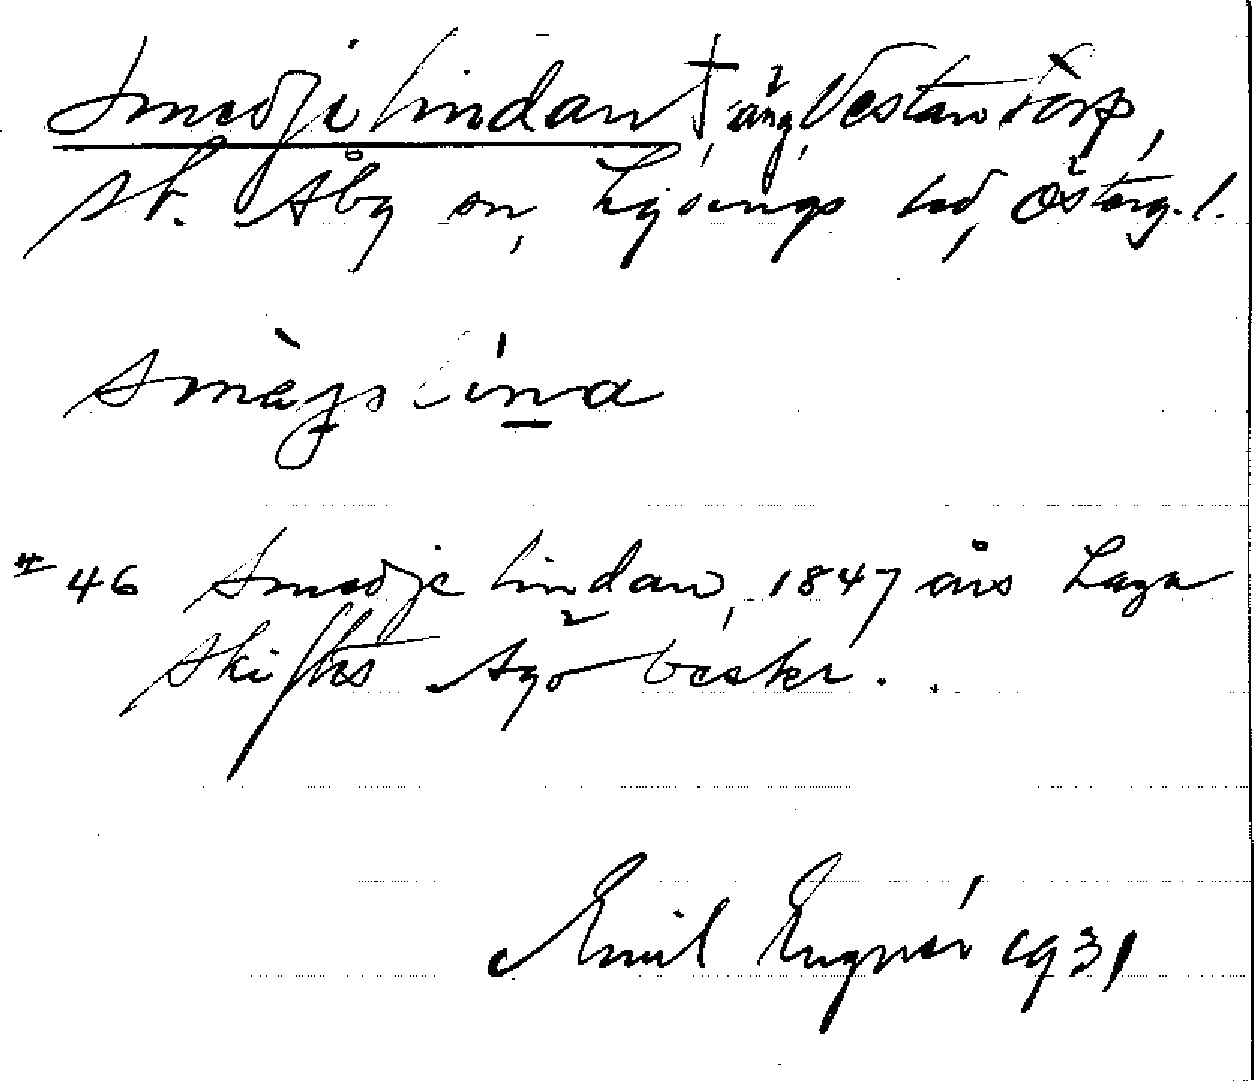 Smedjelindan † äng, Västantorp,
St. Åby sn, Lysings hd, Österg. l.
smèjslina
# 46 Smedjelindan, 1847 års Laga
Skiftes ägobeskr.
Emil Engnér 1931